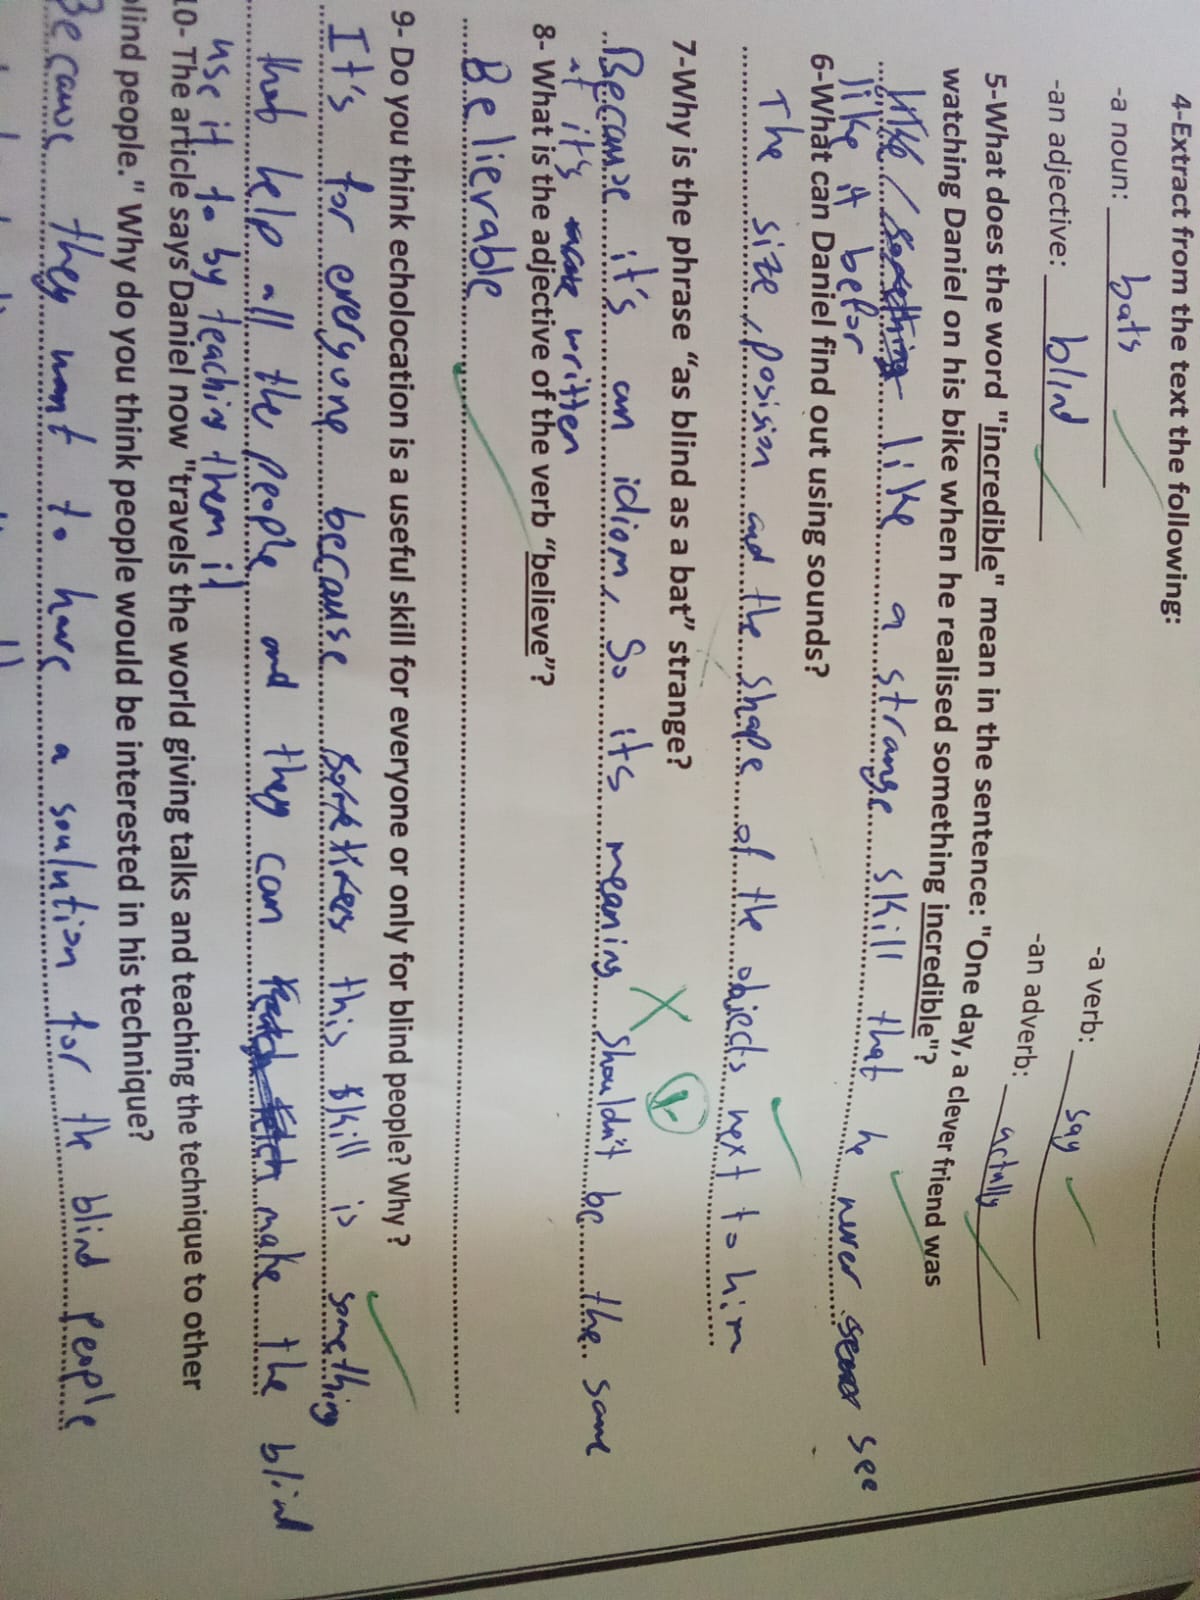 4-Extract from the text the following:
-a noun: bats
-a verb: say
-an adjective: blind
-an adverb: actally
5-What does the word "incredible" mean in the sentence: "One day, a clever friend was
watching Daniel on his bike when he realised something incredible"?
like a strange skill that he never see
like it befor
6-What can Daniel find out using sounds?
The size, posision and the shape of the objects next to him
7-Why is the phrase "as blind as a bat" strange?
Because it's an idiom, So its meaning shouldn't be the same
at it's written
8- What is the adjective of the verb "believe"?
Believable
9- Do you think echolocation is a useful skill for everyone or only for blind people? Why ?
It's for everyone because this skill is something
that help all the people and they can make the blind
use it to by teaching them it
10- The article says Daniel now "travels the world giving talks and teaching the technique to other
blind people." Why do you think people would be interested in his technique?
Because they want to have a soulution for the blind people